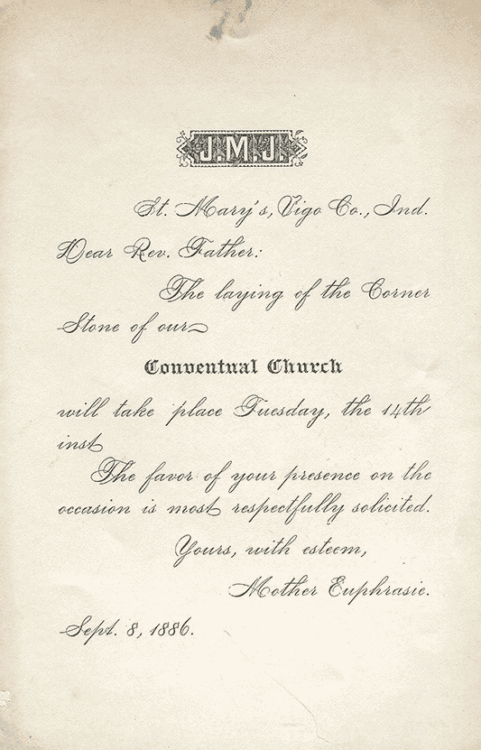 J.M.J.
St. Mary's, Vigo Co., Ind.
Dear Rev. Father:
The laying of the Corner
Stone of our
Conventual Church
will take place Tuesday, the 14th
inst
The favor of your presence on the
occasion is most respectfully solicited.
Yours, with esteem,
Mother Euphrasie.
Sept. 8, 1886.